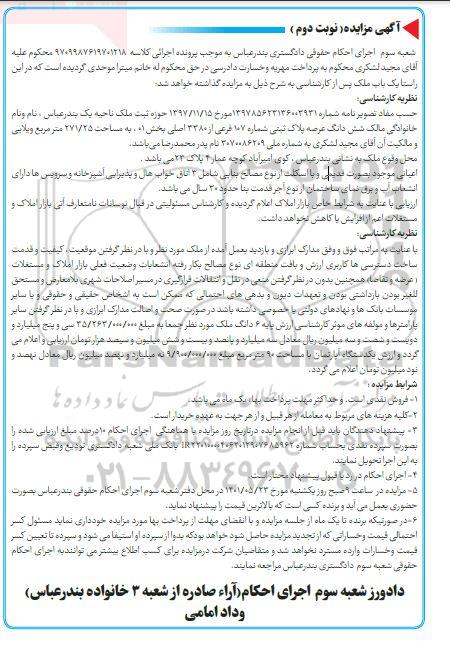 آگهی مزایده( نوبت دوم )
شعبه سوم اجرای احکام حقوقی دادگستری بندرعباس به موجب پرونده اجرائی کلاسه ۹۷۰۹۹۸۷۶۱۹۷۰۱۲۱۸ محکوم علیه
آقای مجید لشکری محکوم به پرداخت مهریه وخسارت دادرسی در حق محکوم له خانم میترا موحدی گردیده است که در این
راستا یک باب ملک پس از کارشناسی به شرح ذیل به مزایده گذاشته خواهد شد:
نظریه کارشناسی:
حسب مفاد تصویر نامه شماره ۱۳۹۷۸۵۶۲۳۱۳۶۰۰۳۹۳۱مورخ ۱۳۹۷/۱۱/۱۵ حوزه ثبت ملک ناحیه یک بندرعباس ، نام ونام
خانوادگی مالک شش دانگ عرصه پلاک ثبتی شماره ۱۰۷ فرعی از۳۳۸۰ اصلی بخش ۰۱ ، به مساحت ۲۷۱/۲۵ متر مربع ویلایی
و مالکیت آن آقای مجید لشکری به شماره ملی ۳۰۷۰۰۸۶۲۰۹ نام پدر محمدرضا می‌باشد.
محل وقوع ملک به نشانی بندرعباس ، کوی امیرآباد کوچه عمار۴ پلاک ۲۳می باشد .
اعیانی موجود بصورت قدیمی و با اسکلت از نوع مصالح بنایی شامل ۳ اتاق خواب هال و پذیرایی آشپزخانه و سرویس ها دارای
انشعاب آب و برق نمای ساختمان از نوع آجر قدمت بنا حدود ۳۰ سال می باشد.
ارزیابی با عنایت به شرایط خاص بازار املاک اعلام گردیده و کارشناس مسئولیتی در قبال نوسانات نامتعارف آتی بازار املاک و
مستغلات اعم از افزایش یا کاهش نخواهد داشت.
نظریه کارشناسی:
با عنایت به مراتب فوق و وفق مدارک ابرازی و بازدید بعمل آمده از ملک مورد نظر و با در نظر گرفتن موقعیت ، کیفیت و قدمت
ساخت دسترسی ها کاربری ارزش و بافت منطقه ای نوع مصالح بکار رفته انشعابات وضعیت فعلی بازار املاک و مستغلات
( عرضه و تقاضا) همچنین بدون در نظر گرفتن منعی در نقل و انتقالات قرارگیری در مسیر اصلاحات شهری بلامعارض و مستحق
للغیر بودن بازداشتی بودن و تعهدات دیون و بدهی های احتمالی که ممکن است به اشخاص حقیقی و حقوقی و یا سایر
موسسات بانک ها و نهادهای دولتی یا خصوصی داشته باشد درصورت صحت و اصالت مدارک ابرازی و با در نظر گرفتن سایر
پارامترها و مولفه های موثر کارشناسی ارزش پایه ۶ دانگ ملک مورد نظر جمعا به مبلغ ۳۵/۲۶۳/۰۰۰/۰۰۰ سی و پنج میلیارد و
دویست و شصت و سه میلیون ریال معادل سه میلیارد و پانصد و بیست و شش میلیون و سیصد هزار تومان ارزیابی و اعلام می
گردد و ارزش یکدستگاه آپارتمان با مساحت ۹۰ متر مربع مبلغ ۹/۹۰۰/۰۰۰/۰۰۰ نه میلیارد و نهصد میلیون ریال معادل نهصد و
نود میلیون تومان اعلام می گردد.
شرایط مزایده :
۱- فروش نقدی است. و حداکثر مهلت پرداخت بها، یک ماه می باشد .
۲-کلیه هزینه های مربوط به معامله از هر قبیل و از هر جهت به عهده خریدار است.
۳- پیشنهاد دهندگان باید قبل از انجام مزایده درتاریخ روز مزایده با هماهنگی اجرای احکام ۱۰درصد مبلغ ارزیابی شده را
بصورت سپرده نقدی بحساب شماره بانک ملی شعبه دادگستری تودیع وفیش سپرده را
به این اجرا تحویل نمایند.
۴- اجرای احکام در رد یا قبول پیشنهاد مختار است.
۵- مزایده در ساعت ۹ صبح روز یکشنبه مورخ ۱۴۰۱/۰۵/۲۳ در محل دفتر شعبه سوم اجرای احکام حقوقی بندرعباس بصورت
حضوری بعمل می آید و برنده کسی است که بالاترین قیمت را پیشنهاد نماید.
۶-در صورتیکه برنده تا یک ماه از جلسه مزایده و با انقضای مهلت از پرداخت بها مورد مزایده خودداری نماید مسئول کسر
احتمالی قیمت وخساراتی که از تجدید مزایده حاصل شود خواهد بودکه بدوا از سپرده او استیفا می شود و سپرده تا تعیین کسر
قیمت وخسارات وارده مسترد نخواهد شد و متقاضیان شرکت درمزایده برای کسب اطلاع بیشتر می توانندبه اجرای احکام
حقوقی شعبه سوم دادگستری بندرعباس مراجعه نمایند.
دادورز شعبه سوم اجرای احکام(آراء صادره از شعبه ۳ خانواده بندرعباس)
وداد امامی